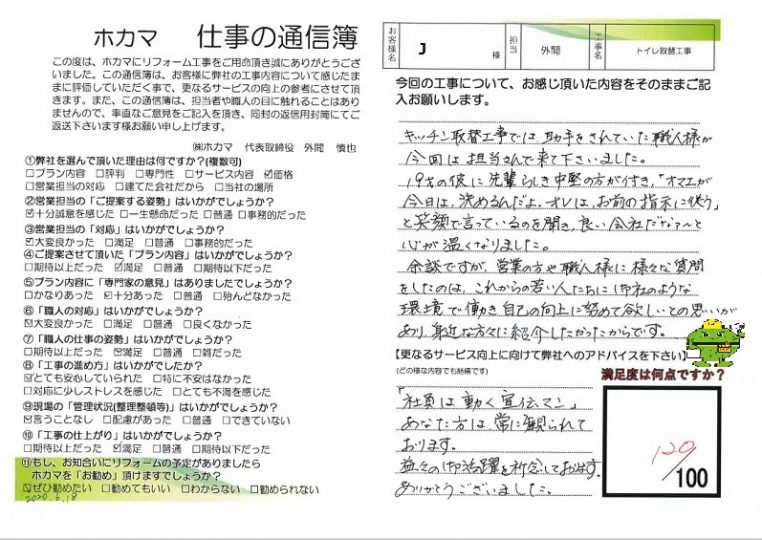 ホカマ 仕事の通信簿
この度は、ホカマにリフォーム工事をご用命頂き誠にありがとうござ
いました。この通信簿は、お客様に弊社の工事内容について感じたま
まに評価していただく事で、更なるサービスの向上の参考にさせて頂
きます。また、この通信簿は、担当者や職人の目に触れることはあり
ませんので、率直なご意見をご記入を頂き、同封の返信用封筒にてご
返送下さいます様お願い申し上げます。
㈱ホカマ 代表取締役 外間 慎也
①弊社を選んで頂いた理由は何ですか?(複数可)
□プラン内容 □評判 □専門性 □サービス内容 ☑価格
□営業担当の対応 □建てた会社だから □当社の場所
②営業担当の「ご提案する姿勢」はいかがでしょうか?
☑十分誠意を感じた □一生懸命だった □普通 □事務的だった
③営業担当の「対応」はいかがでしょうか?
☑大変良かった □満足 □普通 □事務的だった
④ご提案させて頂いた「プラン内容」はいかがでしょうか?
□期待以上だった ☑満足 □普通 □期待以下だった
⑤プラン内容に「専門家の意見」はありましたでしょうか?
□かなりあった ☑十分あった □普通 □殆んどなかった
⑥「職人の対応」はいかがでしょうか?
☑大変良かった □満足 □普通 □良くなかった
⑦「職人の仕事の姿勢」はいかがでしょうか?
□期待以上だった ☑満足 □普通 □雑だった
⑧「工事の進め方」はいかがでしたか?
☑とても安心していられた □特に不安はなかった
□対応に少しストレスを感じた □とても不満を感じた
⑨現場の「管理状況(整理整頓等)」はいかがでしょうか?
☑言うことなし □配慮があった □普通 □できていない
⑩「工事の仕上がり」はいかがでしょうか?
□期待以上だった ☑満足 □普通 □期待以下だった
⑪もし、お知合いにリフォームの予定がありましたら
ホカマを「お勧め」頂けますでしょうか?
☑ぜひ勧めたい □勧めてもいい □わからない □勧められない
2020.6.18
お客様名 J 様 担当 外間 工事名 トイレ取替工事
今回の工事について、お感じ頂いた内容をそのままご記
入お願いします。
キッチン取替工事では助手をされていた職人様が
今回は担当さんで来て下さいました。
19才の彼に先輩らしき中堅の方が付き、「オマエが
今日は、決めるんだよ、オレは、お前の指示に従う」
と笑顔で言っているのを聞き、良い会社だなぁ〜と
心が温くなりました。
余談ですが、営業の方や職人様に様々な質問
をしたのは、これからの若い人たちに御社のような
環境で働き自己の向上に努めて欲しいとの思いが
あり、身近な方々に紹介したかったからです。
【更なるサービス向上に向けて弊社へのアドバイスを下さい】
(どの様な内容でも結構です)
「社員は動く宣伝マン」
あなた方は常に観られて
おります。
益々の御活躍を祈念しております。
ありがとうございました。
満足度は何点ですか?
120
/100